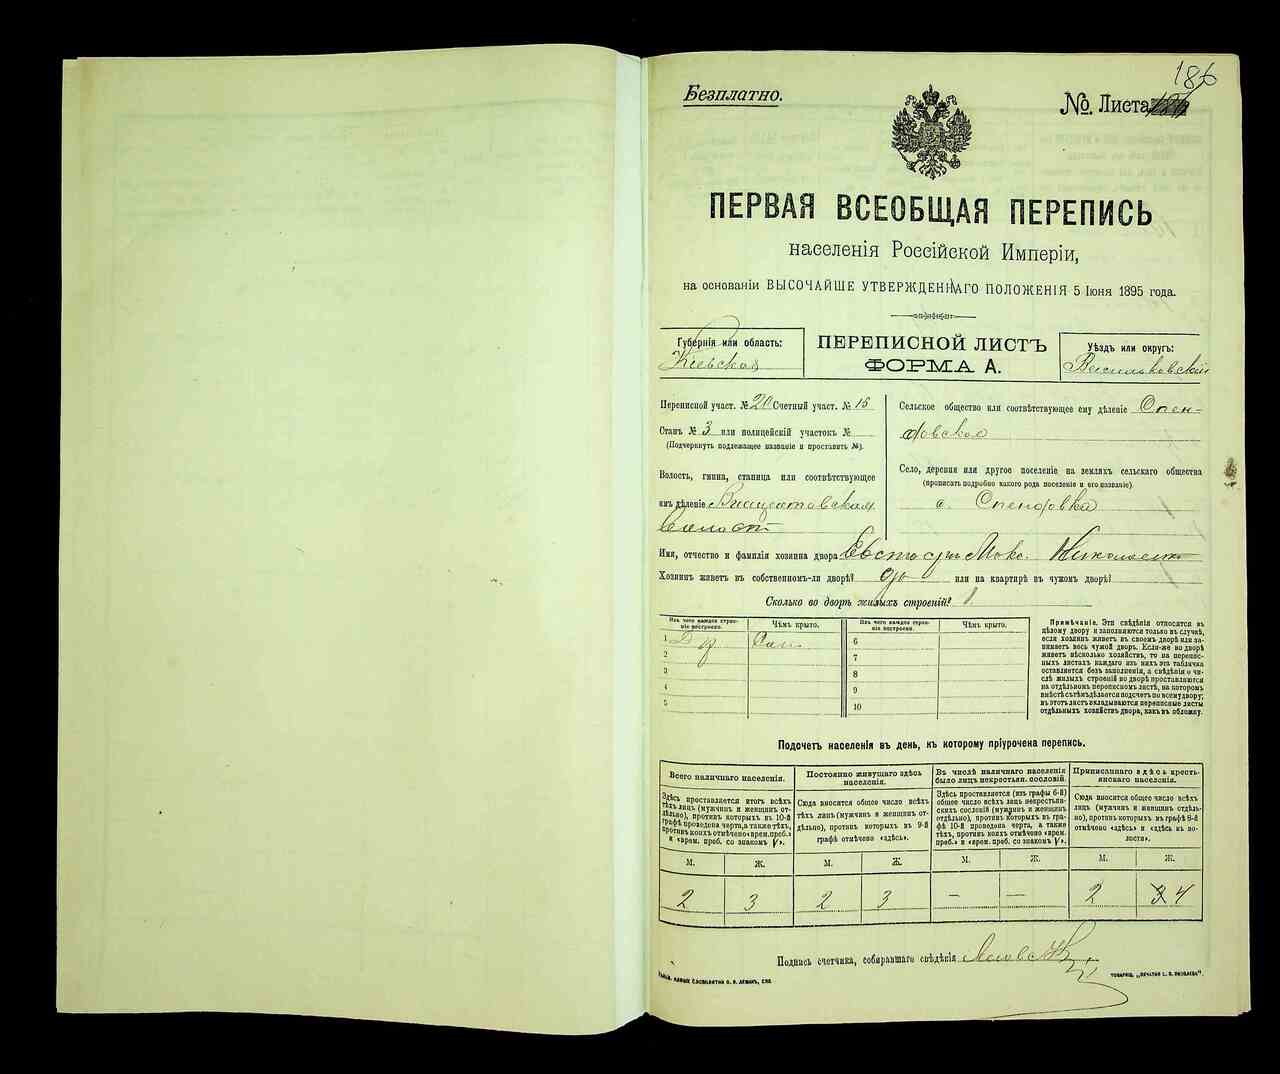 186
Безплатно.
№. Листа
ПЕРВАЯ ВСЕОБЩАЯ ПЕРЕПИСЬ
населенія Россійской Имперіи,
на основаніи ВЫСОЧАЙШЕ УТВЕРЖДЕННАГО ПОЛОЖЕНІЯ 5 Іюня 1895 года.
Губернія или область:
Кіевская
ПЕРЕПИСНОЙ ЛИСТЪ
ФОРМА А.
Уѣздъ или округъ:
Васильковскій
Переписной участ. № 20 Счетный участ. № 15
Станъ № 3 или полицейскій участокъ №
(Подчеркнуть подлежащее названіе и проставить №).
Волость, гмина, станица или соотвѣтствующее
имъ дѣленіе
Сельское общество или соотвѣтствующее ему дѣленіе
Село, деревня или другое поселеніе на земляхъ сельскаго общества
(прописать подробно какого рода поселеніе и его названіе).
с.
Имя, отчество и фамилія хозяина двора
Хозяинъ живетъ въ собственномъ-ли дворѣ? или на квартирѣ въ чужомъ дворѣ?
Сколько во дворѣ жилыхъ строеній? 1.
Изъ чего каждое строеніе построено.
Чѣмъ крыто.
Изъ чего каждое строеніе построено.
Чѣмъ крыто.
1 6
2 7
3 8
4 9
5 10
Примѣчаніе. Эти свѣдѣнія относятся къ
цѣлому двору и заполняются только въ случаѣ,
если хозяинъ живетъ въ своемъ дворѣ или за-
нимаетъ весь чужой дворъ. Если-же во дворѣ
живетъ нѣсколько хозяйствъ, то на перепис-
ныхъ листахъ каждаго изъ нихъ эта табличка
оставляется безъ заполненія, а свѣдѣнія о чи-
слѣ жилыхъ строеній во дворѣ проставляются
на отдѣльномъ переписномъ листѣ, на которомъ
вмѣстѣ съ тѣмъ дѣлается подсчетъ по всему двору;
въ этотъ листъ вкладываются переписные листы
отдѣльныхъ хозяйствъ двора, какъ въ обложку.
Подсчетъ населенія въ день, къ которому пріурочена перепись.
Всего наличнаго населенія.
Здѣсь проставляется итогъ всѣхъ
тѣхъ лицъ (мужчинъ и женщинъ от-
дѣльно), противъ которыхъ въ 10-й
графѣ проведена черта, а также тѣхъ,
противъ коихъ отмѣчено «врем. преб.»
и «врем. преб. со знакомъ V».
Постоянно живущаго здѣсь
населенія.
Сюда вносится общее число всѣхъ
тѣхъ лицъ (мужчинъ и женщинъ от-
дѣльно), противъ которыхъ въ 9-й
графѣ отмѣчено «здѣсь».
Въ числѣ наличнаго населенія
было лицъ некрестьян. сословій.
Здѣсь проставляется (изъ графы 6-й)
общее число всѣхъ лицъ некрестьян-
скихъ сословій (мужчинъ и женщинъ
отдѣльно), противъ которыхъ въ гра-
фѣ 10-й проведена черта, а также
тѣхъ, противъ коихъ отмѣчено «врем.
преб.» и «врем. преб. со знакомъ V».
Приписаннаго здѣсь кресть-
янскаго населенія.
Сюда вносится общее число всѣхъ
лицъ (мужчинъ и женщинъ отдѣль-
но), противъ которыхъ въ графѣ 8-й
отмѣчено «здѣсь» и «здѣсь въ во-
лости».
М. Ж. М. Ж. М. Ж. М. Ж.
2 3 2 3 — — 2 4
Подпись счетчика, собиравшаго свѣдѣнія